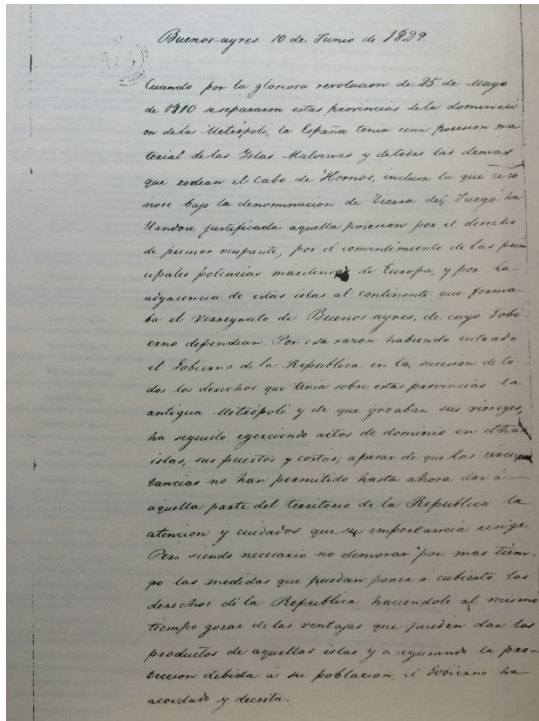 Buenos-ayres 10 de Junio de 1829.
Cuando por la gloriosa revolucion de 25 de Mayo
de 1810 se separaron estas provincias de la dominaci
on de la Metrópoli, la España tenia una posesion ma
terial de las Yslas Malvinas y de todas las demas
que rodean el Cabo de Hornos, inclusa la que se co
nose bajo la denominacion de Tierra del Fuego: ha
llandose justificada aquella posesion por el derecho
de primer ocupante, por el consentimiento de las prin
cipales potencias maritimas de Europa, y por la
adyacencia de estas islas al continente que forma-
ba el Virreynato de Buenos-ayres, de cuyo Gobi
erno dependian. Por esa razon habiendo entrado
el Gobierno de la Republica en la sucesion de to
dos los derechos que tenia sobre estas provincias la
antigua Metrópoli y de que gozaban sus virreyes,
ha seguido egerciendo actos de dominio en dhas
islas, sus puertos y costas; apesar de que las circuns
tancias no han permitido hasta ahora dar á
aquella parte del territorio de la Republica la
atencion y cuidados que su importancia exsige
Pero siendo necesario no demorar por mas tiem-
po las medidas que puedan poner á cubierto los
derechos de la Republica haciendole al mismo
tiempo gozar de las ventajas que pueden dar los
productos de aquellas islas y asegurando la pro-
teccion debida á su poblacion, el Gobierno ha
acordado y decreta.